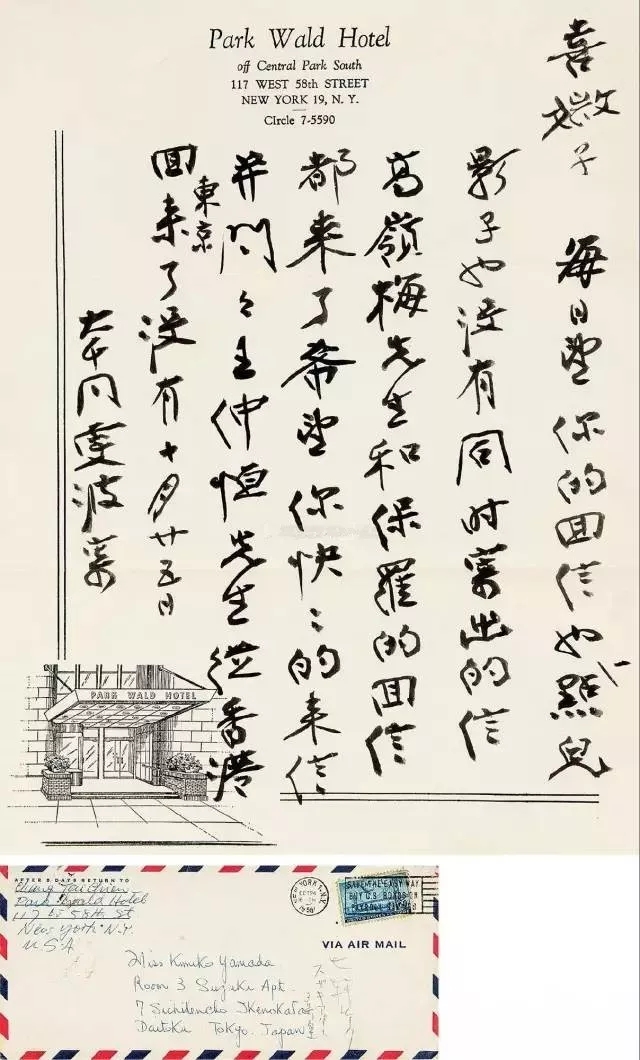 Park Wald Hotel
off Central Park South
117 WEST 58th STREET
NEW YORK 19, N. Y.
CIrcle 7-5590
喜媺子 每日望你的回信也一點兒
影子也没有同时寄出的信
高嶺梅先生和保羅的回信
都来了希望你快〻的来信
并問〻王仲恒先生從香港
回東京来了没有十月廿五日
大千同雯波寄
PARK WALD HOTEL
AFTER 5 DAYS RETURN TO
Chang Tai Chien
Park Wald Hotel
117 W 58th St
New York N.Y.
U S A
NEW YORK, N.Y.
SAVE THE EASY WAY
BUY U.S. BONDS ON
PAYROLL SAVINGS
VIA AIR MAIL
Miss Kimiko Yamada
Room 3 Suzuki Apt.
7 Sichikencho Ikenohata
Daitoku Tokyo. Japan